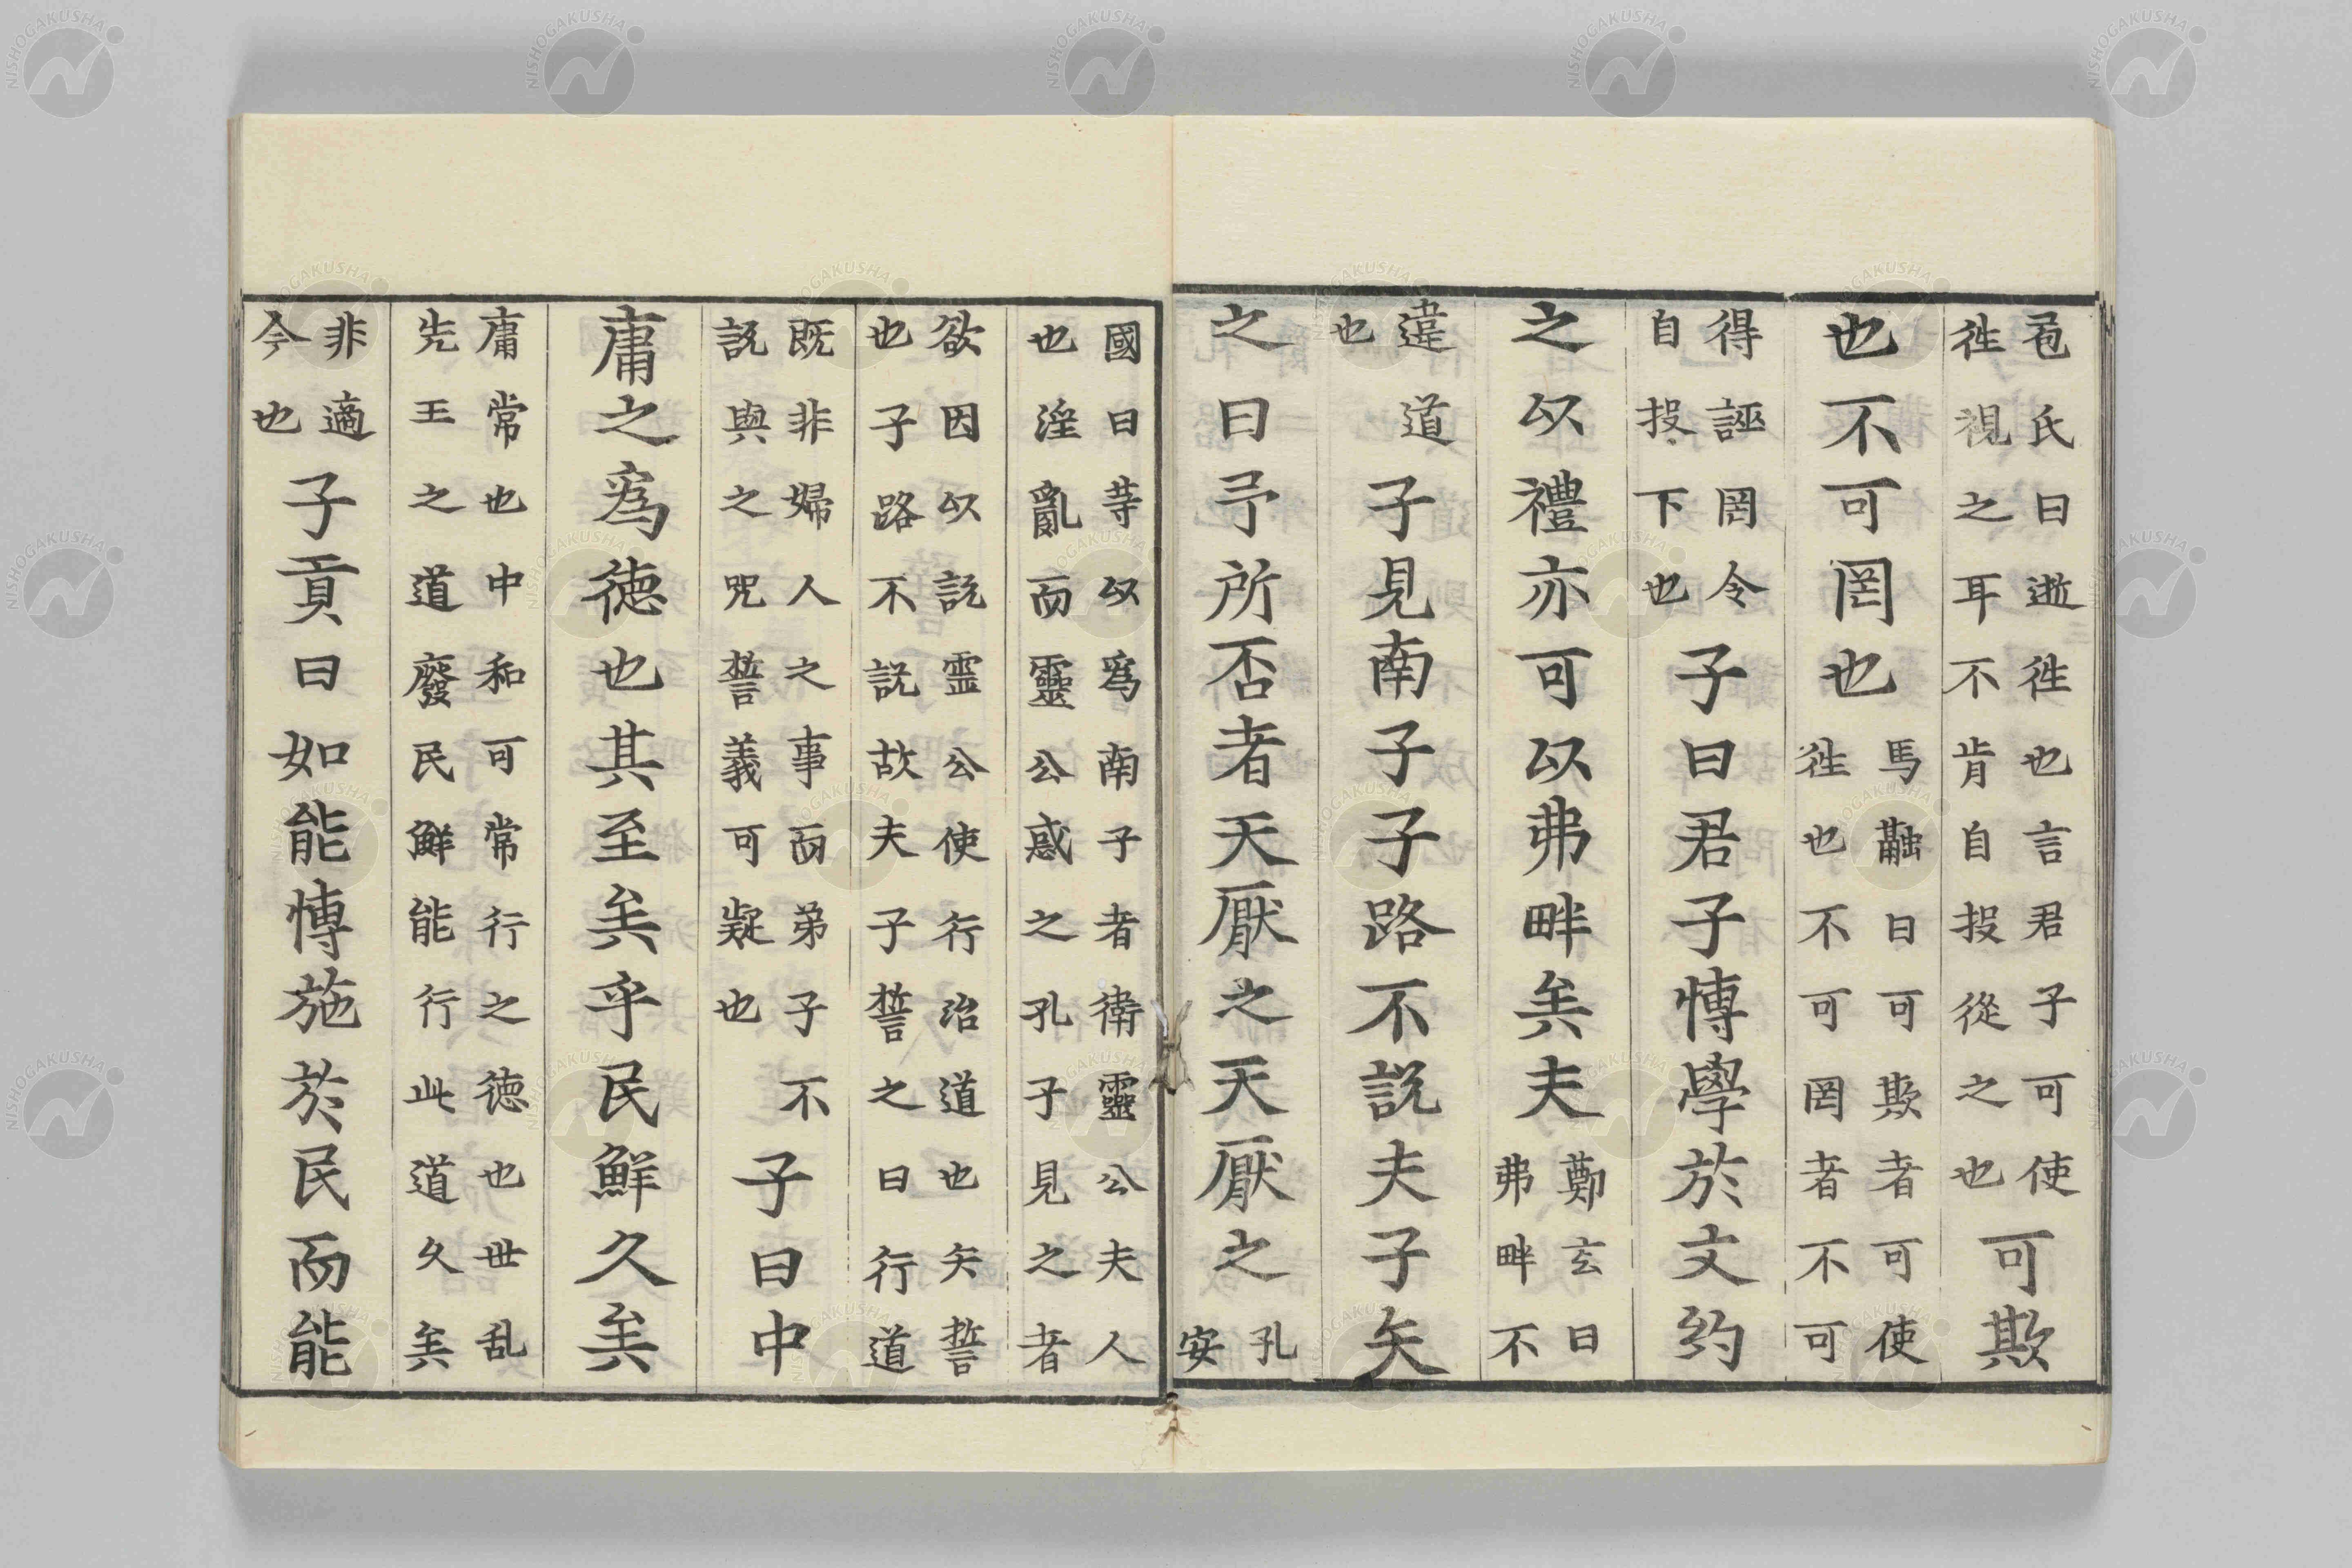 苞氏曰逝往也言君子可使
往視之耳不肯自投從之也
可欺
也不可罔也
馬融曰可欺者可使
往也不可罔者不可
得誣罔令
自投下也
子曰君子博學於文約
之以禮亦可以弗畔矣夫
鄭玄曰
弗畔不
違道
也
子見南子子路不說夫子矢
之曰予所否者天厭之天厭之
孔
安
國曰等以爲南子者衛靈公夫人
也淫亂而靈公惑之孔子見之者
欲因以說靈公使行治道也矢誓
也子路不說故夫子誓之曰行道
既非婦人之事而弟子不
說與之咒誓義可疑也
子曰中
庸之爲德也其至矣乎民鮮久矣
庸常也中和可常行之德也世乱
先王之道廢民鮮能行此道久矣
非適
今也
子貢曰如能博施於民而能
NISHOGAKUSHA